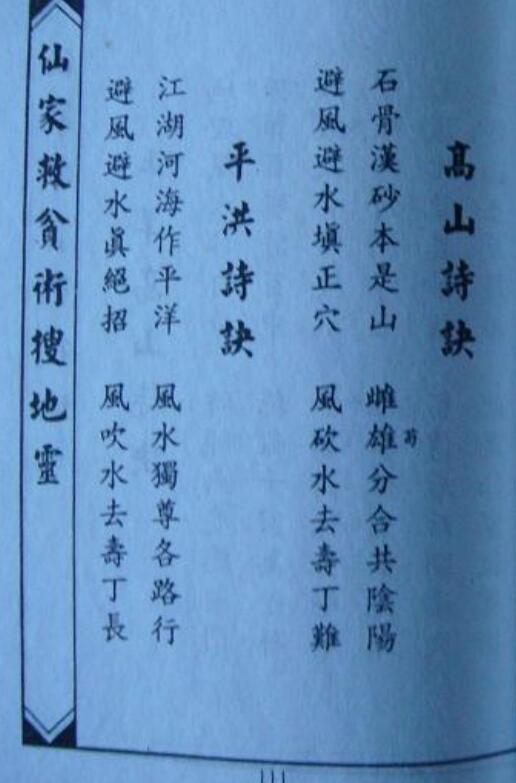 高山詩訣
石骨漢砂本是山　雌雄分合共陰陽
避風避水塡正穴　風砍水去壽丁難
平洪詩訣
江湖河海作平洋　風水獨尊各路行
避風避水眞絕招　風吹水去壽丁長
仙家救貧術搜地靈